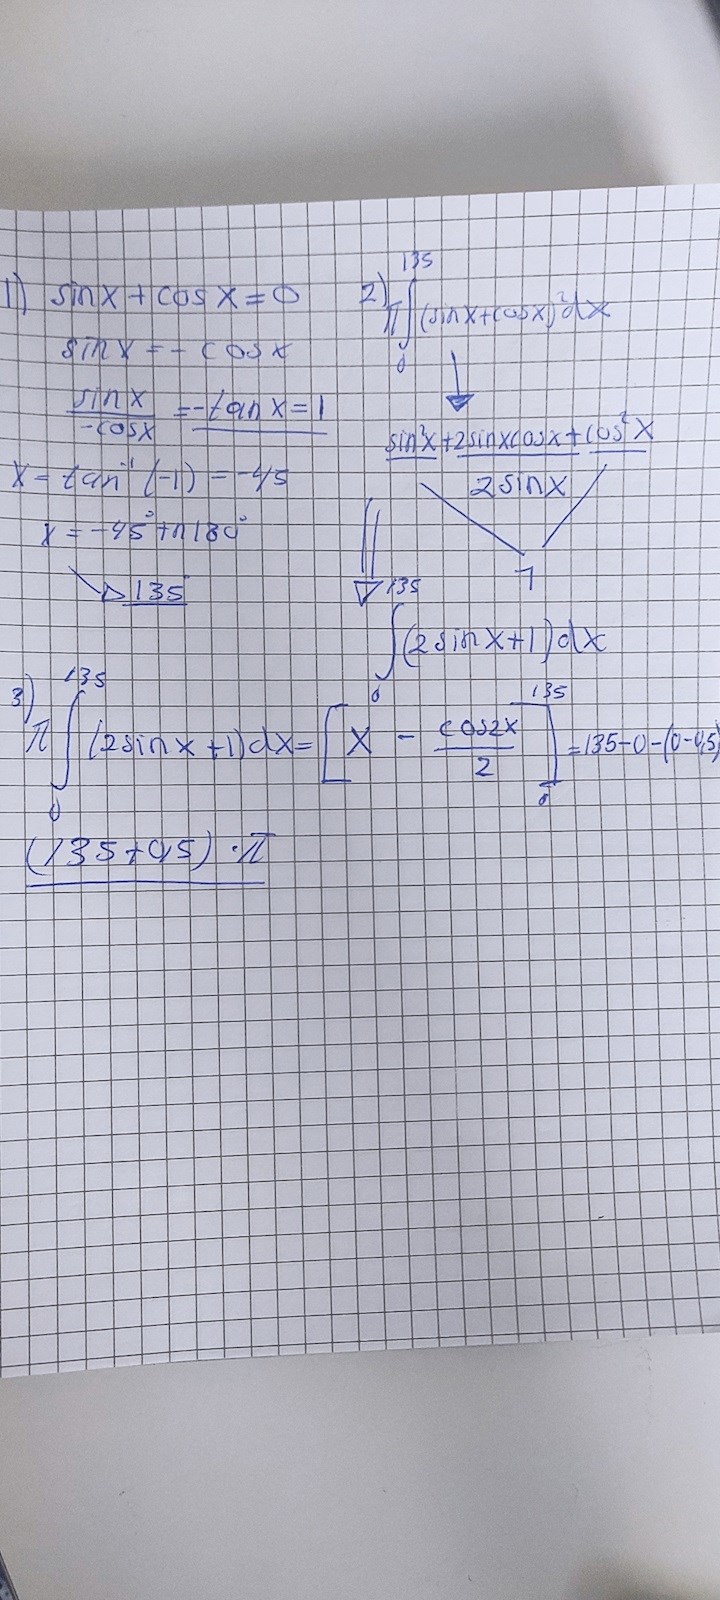 1) sinx + cosx = 0
sinx = - cosx
sinx / -cosx = -tanx = 1
x = tan⁻¹ (-1) = -45
x = -45° + n180°
135
2) π ∫₀¹³⁵ (sinx+cosx)² dx
sin²x + 2sinxcosx + cos²x
2sinx
1
∫₀¹³⁵ (2sinx+1) dx
3) π ∫₀¹³⁵ (2sinx+1) dx = [x - cos2x / 2]₀¹³⁵ = 135-0-(0-0,5)
(135+0,5) · π